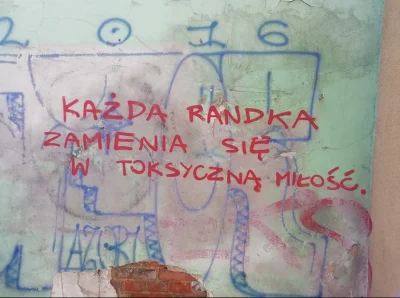 2 0 1 6
KAŻDA RANDKA
ZAMIENIA SIĘ
W TOKSYCZNĄ MIŁOŚĆ.